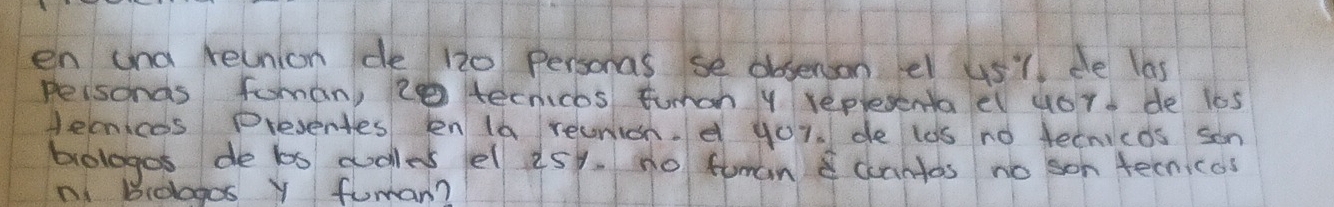 en una reunion de 120 Personas se observan el 45%. de las
Personas fuman, 20 tecnicos fuman y representa el 40%. de los
tecnicos Presentes en la reunion. el 40%. de los no tecnicos son
biologos de los cuales el 25%. no fuman ¿ cuantos no son tecnicos
ni Biologos y fuman?